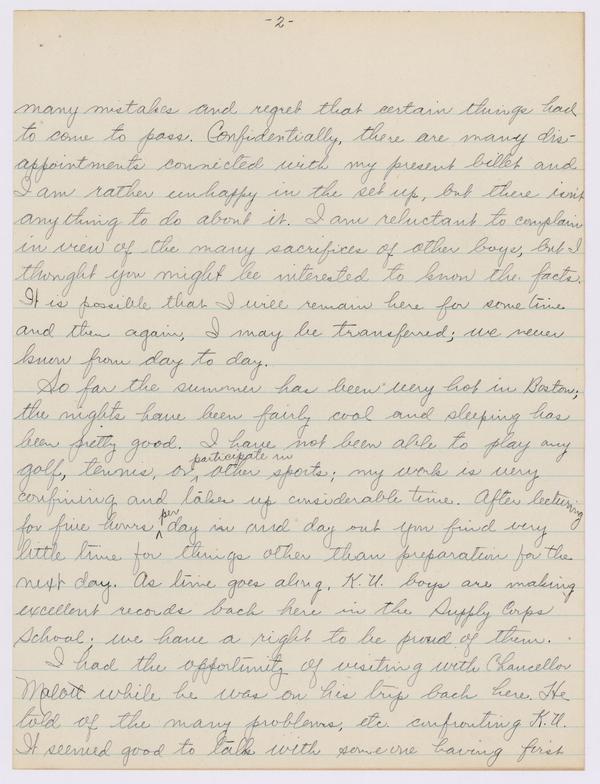 -2-
many mistakes and regret that certain things had
to come to pass. Confidentially, there are many dis-
appointments connected with my present billet and
I am rather unhappy in the set up, but there isn't
anything to do about it. I am reluctant to complain
in view of the many sacrifices of other boys, but I
thought you might be interested to know the facts.
It is possible that I will remain here for some time
and then again, I may be transferred; we never
know from day to day.
So far the summer has been very hot in Boston;
the nights have been fairly cool and sleeping has
been pretty good. I have not been able to play any
golf, tennis, or participate in other sports; my work is very
confining and takes up considerable time. After lecturing
for five hours per day in and day out you find very
little time for things other than preparation for the
next day. As time goes along, K.U. boys are making
excellent records back here in the Supply Corps
School; we have a right to be proud of them.
I had the opportunity of visiting with Chancellor
Malott while he was on his trip back here. He
told of the many problems, etc. confronting K.U.
It seemed good to talk with someone having first